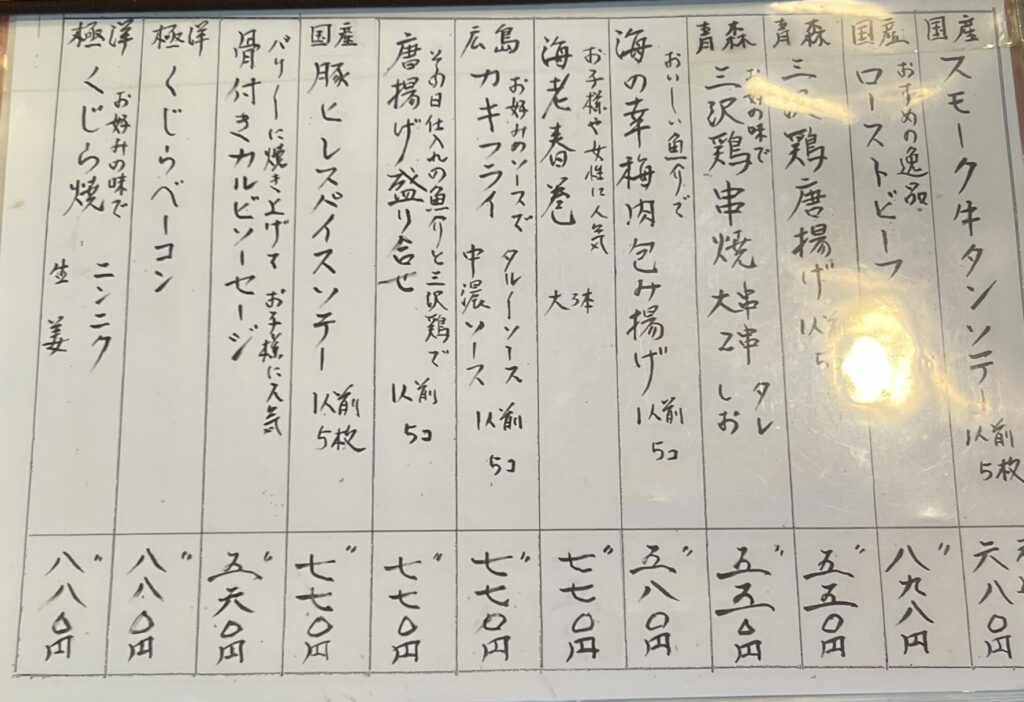 国産
スモーク牛タンソテー
1人前
5枚
六八〇円
国産
おすすめの逸品
ローストビーフ
〃
八九八円
青森
三沢鶏唐揚げ
1人前
5
〃
五五〇円
青森
お好みの味で
三沢鶏串焼
大串 タレ
2串 しお
〃
五五〇円
おいしい魚介で
海の幸梅肉包み揚げ
1人前
5コ
〃
五八〇円
お子様や女性に人気
海老春巻
大3本
〃
七七〇円
広島
お好みのソースで
カキフライ
タルイーソース
中濃ソース
1人前
5コ
〃
七七〇円
その日仕入れの魚介と三沢鶏で
唐揚げ盛り合せ
1人前
5コ
〃
七七〇円
国産
豚ヒレスパイスソテー
1人前
5枚
〃
七七〇円
パリーに焼き上げて お子様に人気
骨付きカルビソーセージ
〃
五六〇円
極洋
くじらベーコン
〃
八八〇円
極洋
お好みの味で
くじら焼
ニンニク
生姜
〃
八八〇円